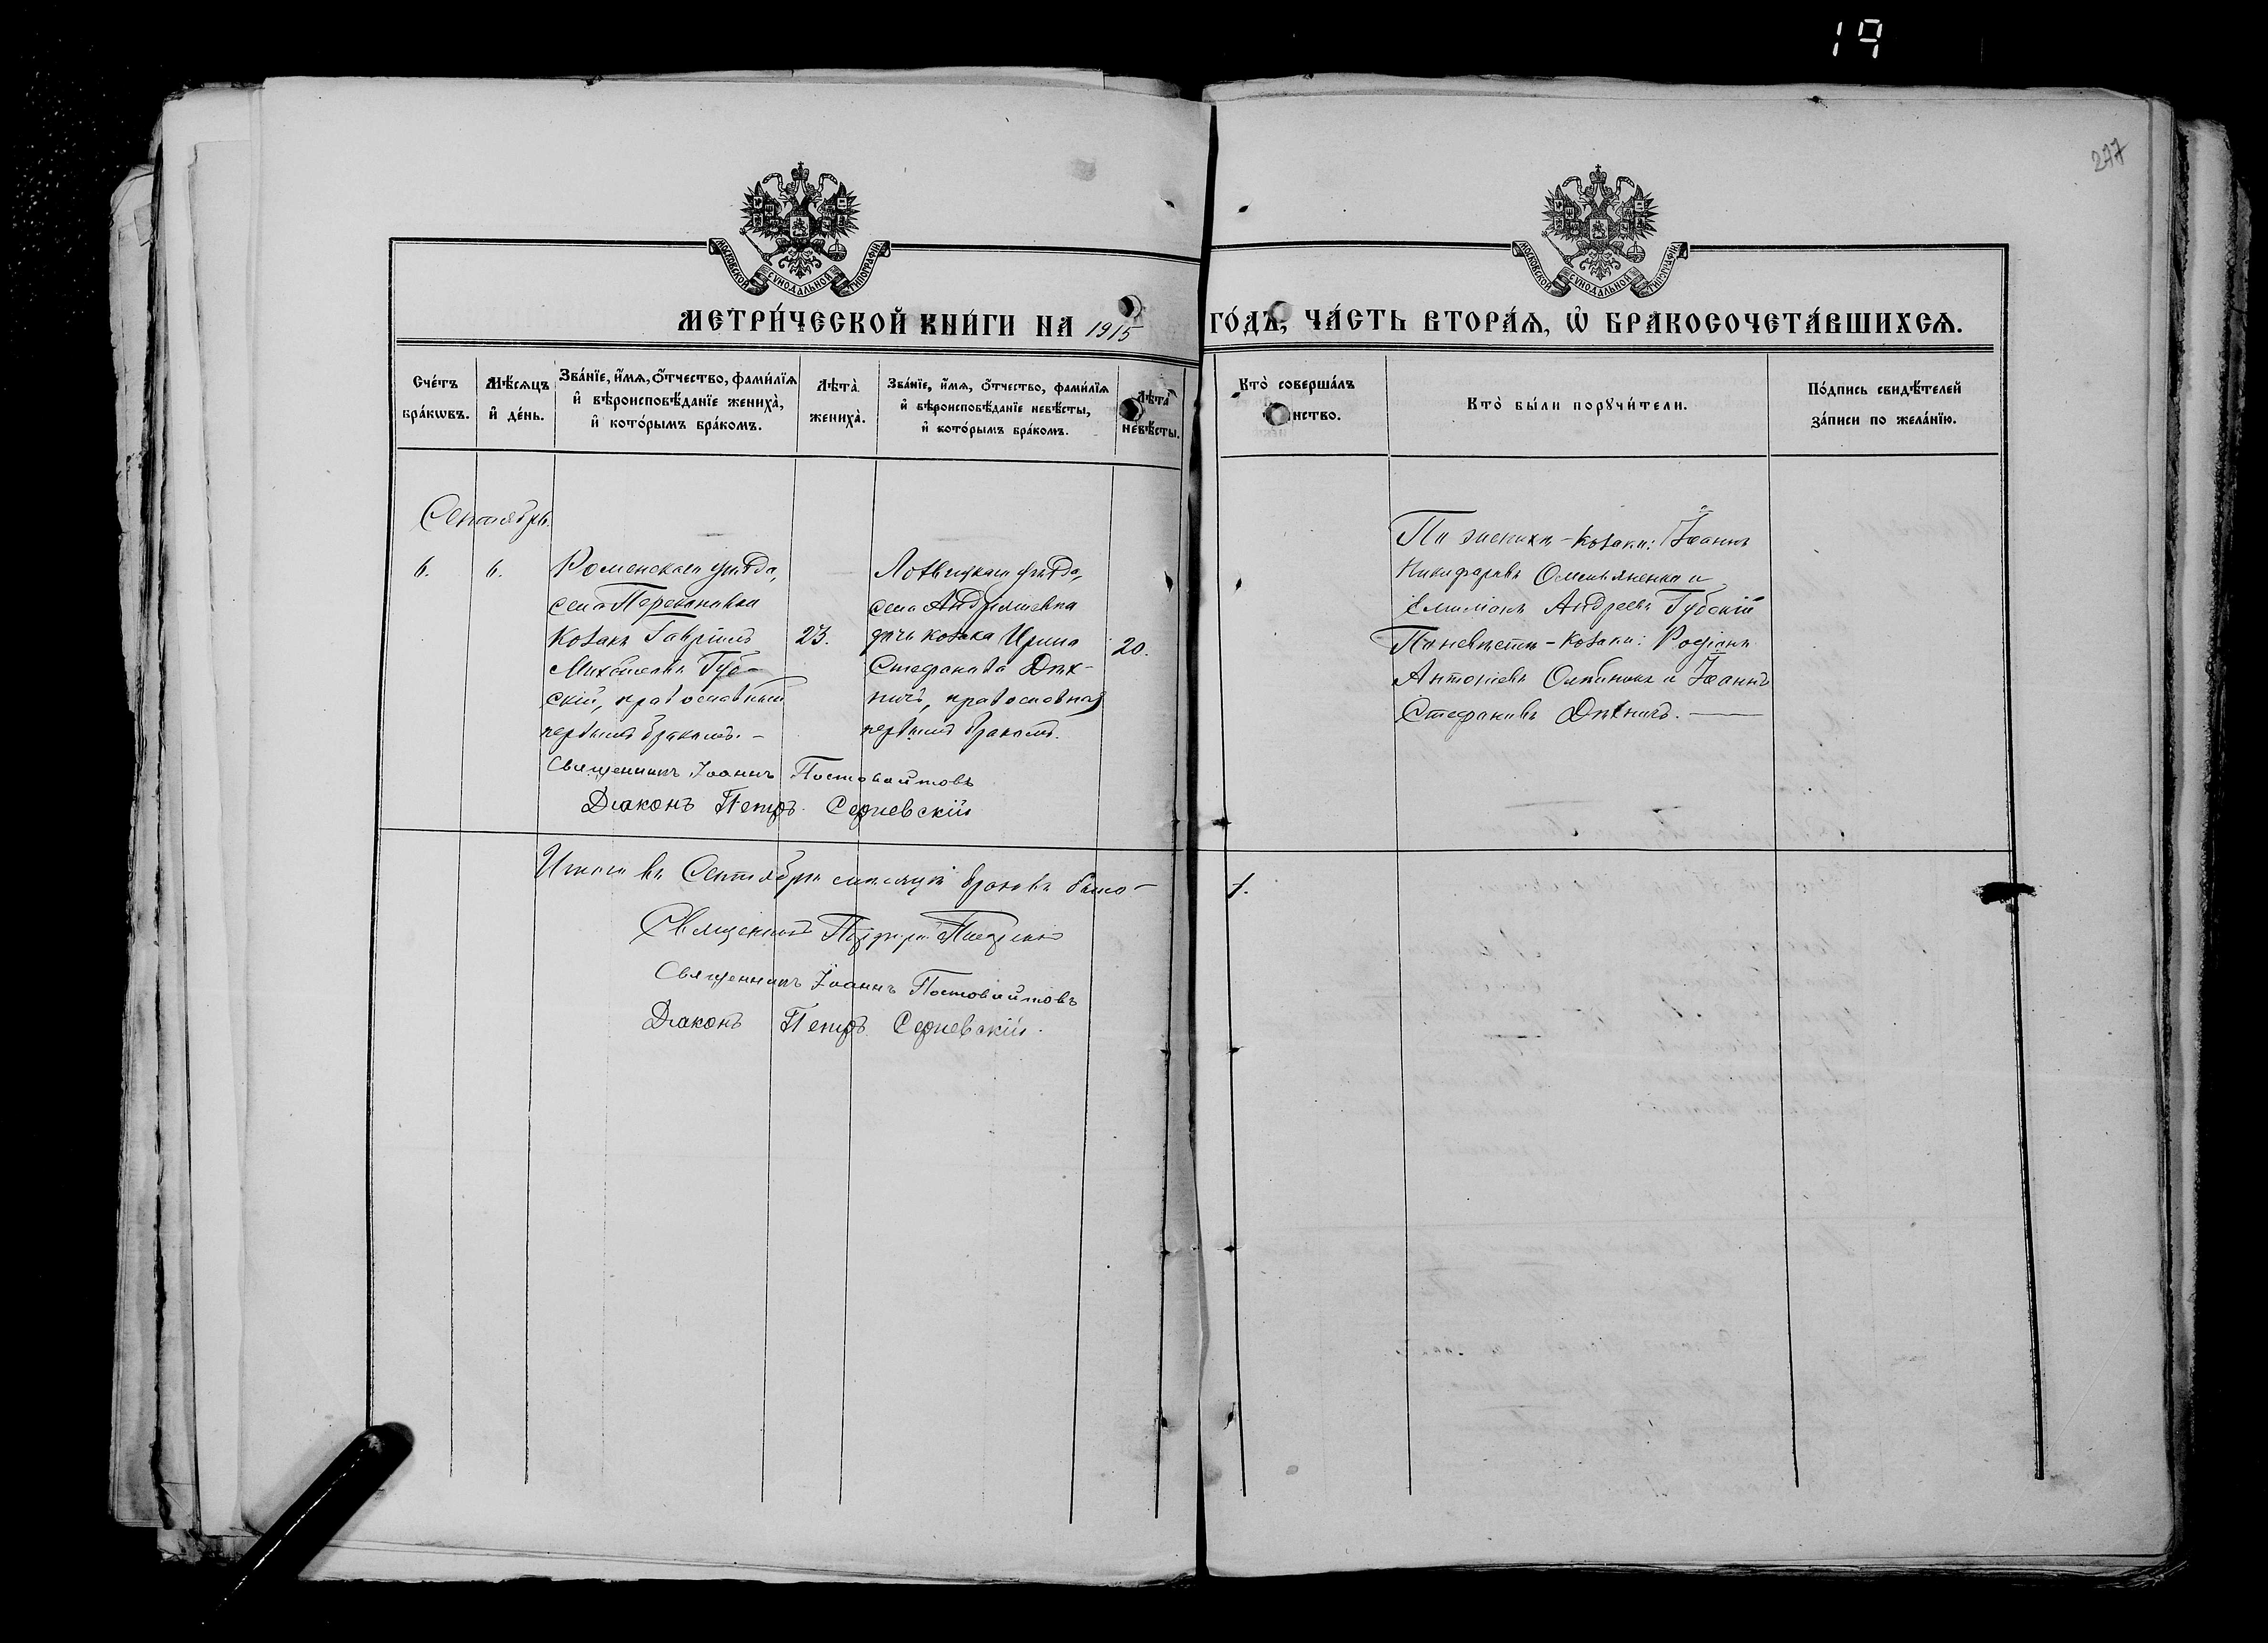 19
277
МОСКОВСКОЙ СУНОДАЛЬНОЙ ТИПОГРАФІИ
МОСКОВСКОЙ СУНОДАЛЬНОЙ ТИПОГРАФІИ
МЕТРИ́ЧЕСКОЙ КНИ́ГИ НА 1915 ГО́ДЪ, ЧА́СТЬ ВТОРА́Ѧ, Ѡ҆ БРАКОСОЧЕТА́ВШИХСѦ.
Сче́тъ бра́кѡвъ.
Мѣ́сѧцъ и҆ де́нь.
Зва́нїе, и҆́мѧ, ѻ҆́тчество, фами́лїѧ и҆ вѣроисповѣ́данїе жениха̀, и҆ кото́рымъ бра́комъ.
Лѣта̀ жениха̀.
Зва́нїе, и҆́мѧ, ѻ҆́тчество, фами́лїѧ и҆ вѣроисповѣ́данїе невѣ́сты, и҆ кото́рымъ бра́комъ.
Лѣта̀ невѣ́сты.
Кто̀ соверша́лъ нство.
Кто̀ бы́ли порꙋчи́тели.
По́дпись свидѣ́телей за́писи по жела́нїю.
Сентябрь.
6. 6.
Роменскаго уѣзда,
села Перекоповки
козакъ Гавріилъ
Михаиловъ Губ-
скій, православный
первымъ бракомъ. –
23.
Лохвицкаго уѣзда,
села Андріяшевки
дочь козака Ирина
Стефанова Дѣх-
ничъ, православная
первымъ бракомъ.
20.
По женихѣ – козаки: Іоаннъ
Никифоровъ Омельяненко и
Емиліанъ Андреевъ Губскій
По невѣстѣ – козаки: Родіонъ
Антоніевъ и Іоаннъ
Стефановъ Дѣхничъ. —
Священникъ Іоаннъ Постовойтовъ
Діаконъ Петръ Сериевскій
Итого въ Сентябрѣ мѣсяцѣ браковъ было – 1.
Священникъ
Священникъ Іоаннъ Постовойтовъ
Діаконъ Петръ Сериевскій.